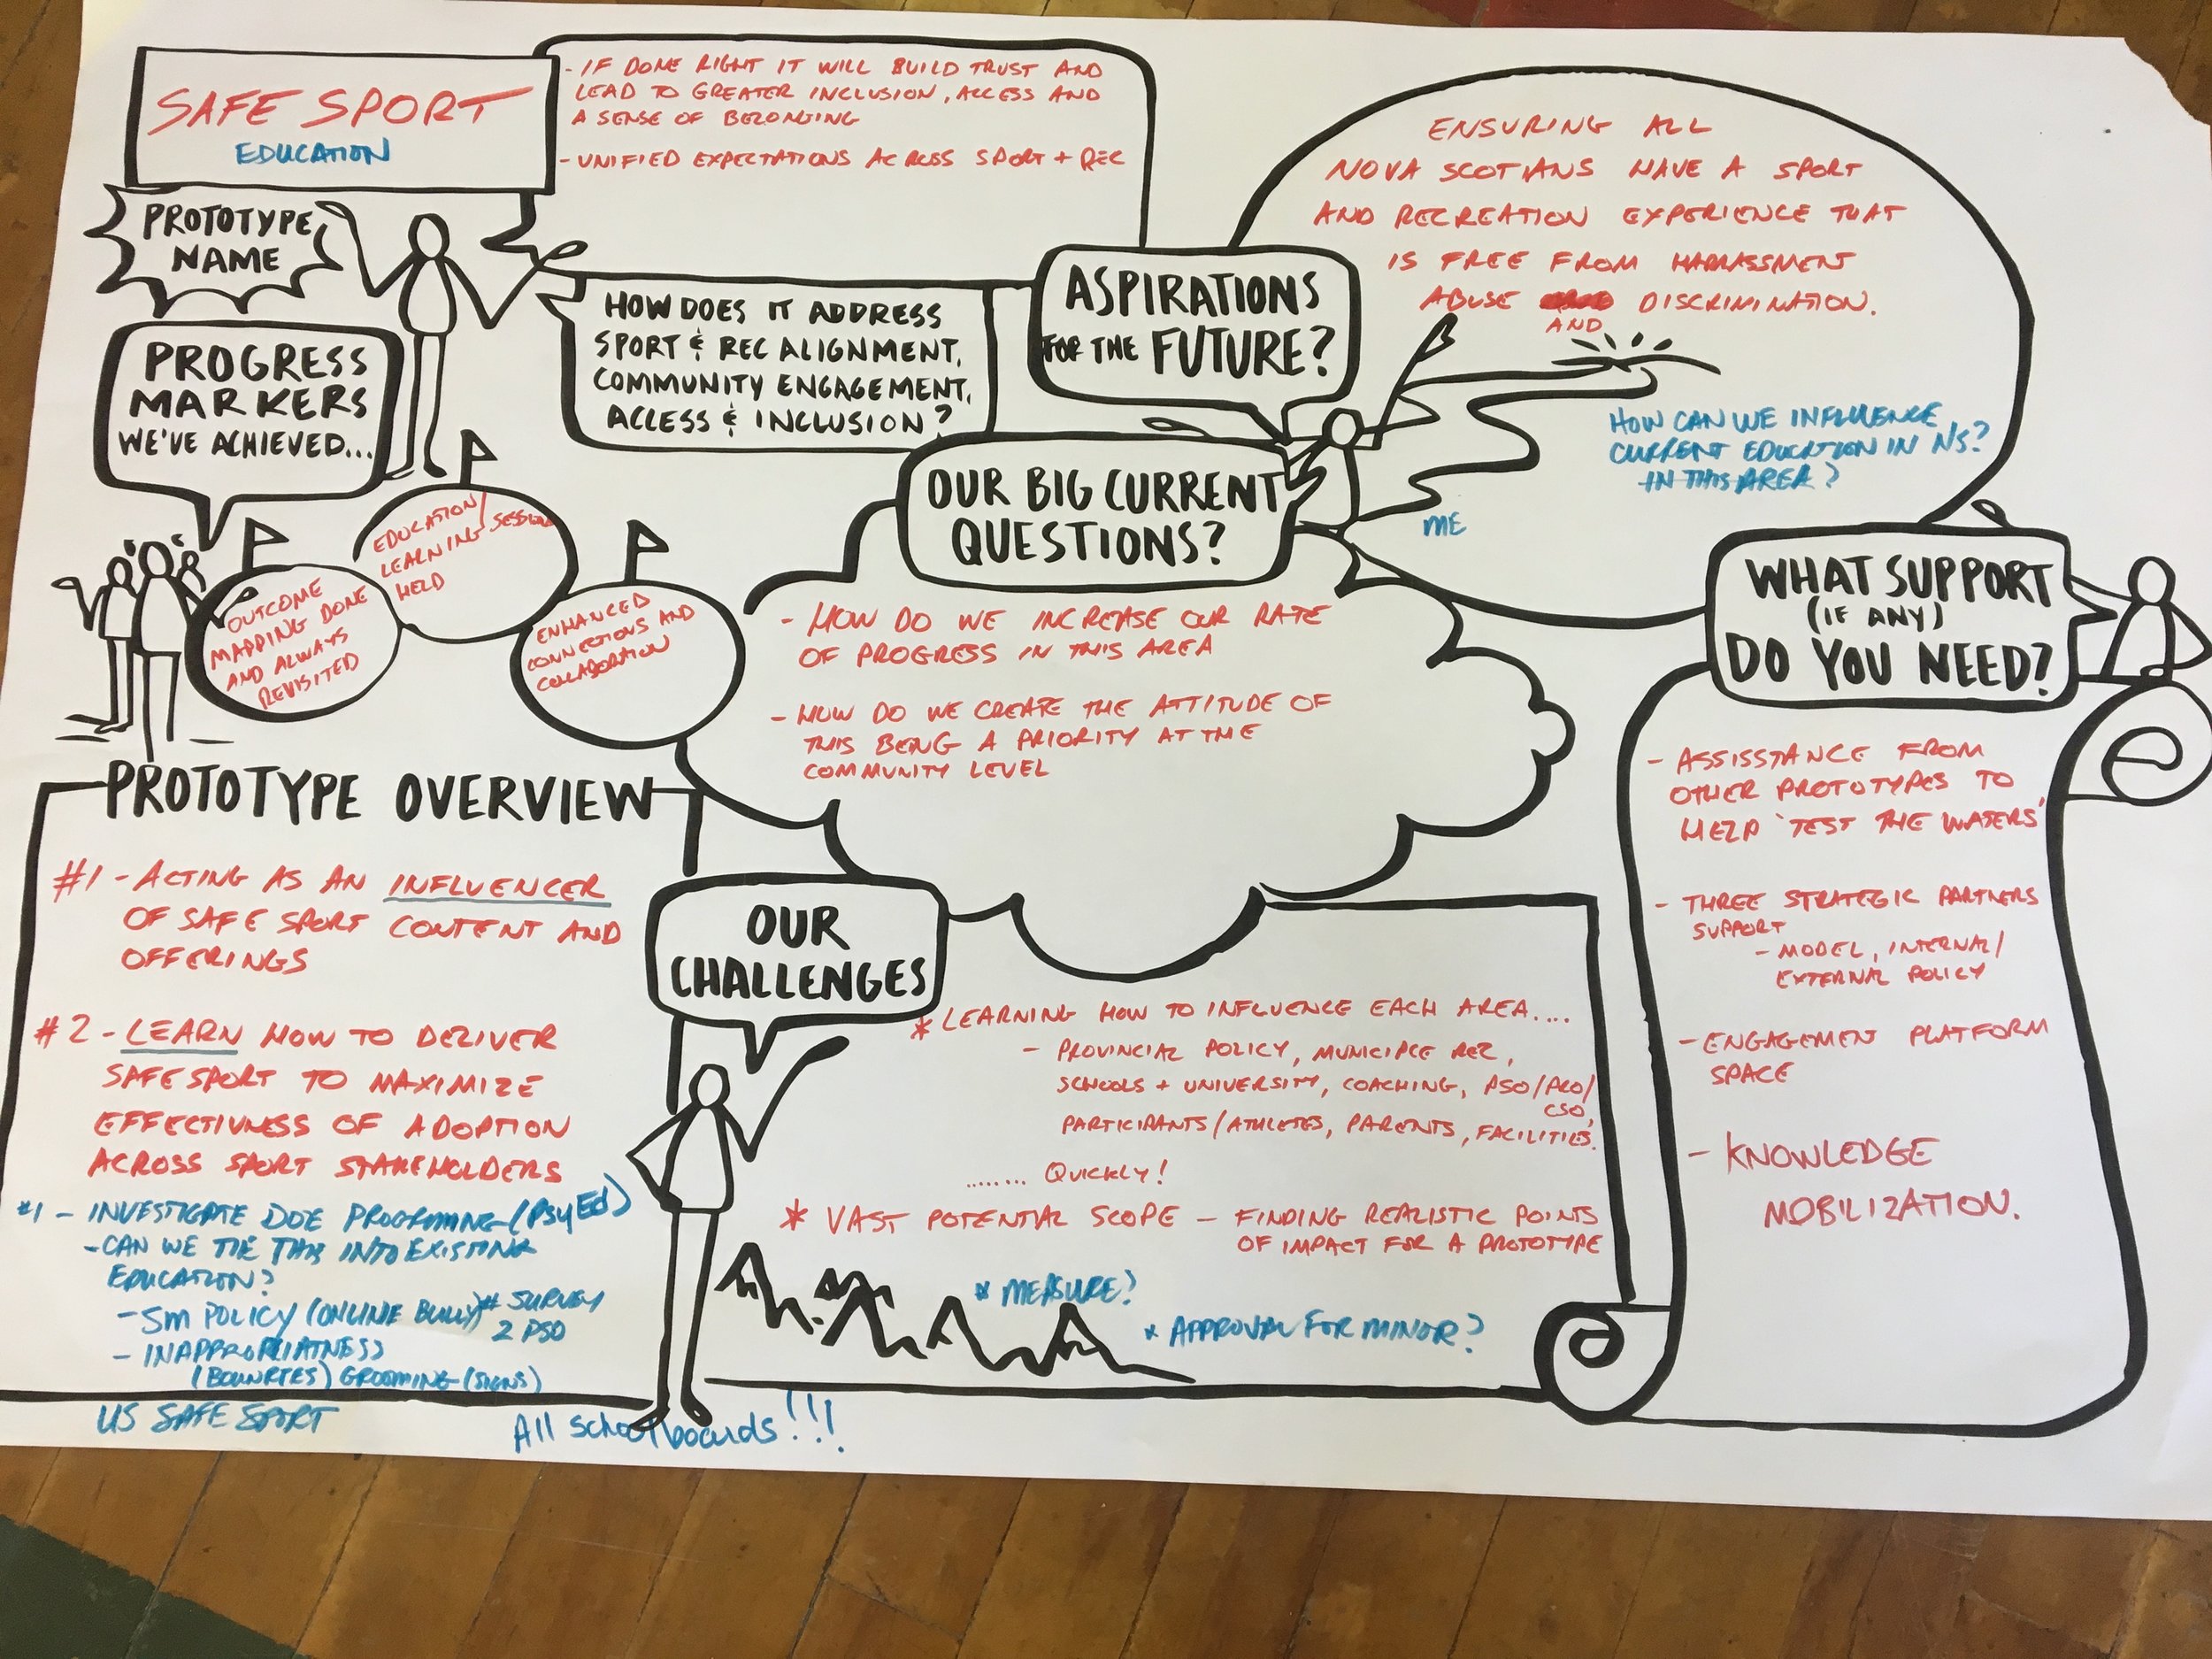 SAFE SPORT
EDUCATION
PROTOTYPE
NAME
- IF DONE RIGHT IT WILL BUILD TRUST AND
LEAD TO GREATER INCLUSION, ACCESS AND
A SENSE OF BELONGING
- UNIFIED EXPECTATIONS ACROSS SPORT + REC
HOW DOES IT ADDRESS
SPORT & REC ALIGNMENT,
COMMUNITY ENGAGEMENT,
ACCESS & INCLUSION?
ASPIRATIONS
FOR THE FUTURE?
ENSURING ALL
NOVA SCOTIANS HAVE A SPORT
AND RECREATION EXPERIENCE THAT
IS FREE FROM HARRASSMENT
ABUSE DISCRIMINATION.
AND
HOW CAN WE INFLUENCE
CURRENT EDUCATION IN NS?
IN THIS AREA?
ME
PROGRESS
MARKERS
WE'VE ACHIEVED...
OUTCOME
MAPPING DONE
AND ALWAYS
REVISITED
EDUCATION/
LEARNING SESSION
HELD
ENHANCED
CONNECTIONS AND
COLLABORATION
OUR BIG CURRENT
QUESTIONS?
- HOW DO WE INCREASE OUR RATE
OF PROGRESS IN THIS AREA
- HOW DO WE CREATE THE ATTITUDE OF
THIS BEING A PRIORITY AT THE
COMMUNITY LEVEL
WHAT SUPPORT
(IF ANY)
DO YOU NEED?
- ASSISSTANCE FROM
OTHER PROTOTYPES TO
HELP 'TEST THE WATERS'
- THREE STRATEGIC PARTNERS
SUPPORT
- MODEL, INTERNAL/
EXTERNAL POLICY
- ENGAGEMENT PLATFORM
SPACE
- KNOWLEDGE
MOBILIZATION.
PROTOTYPE OVERVIEW
#1 - ACTING AS AN INFLUENCER
OF SAFE SPORT CONTENT AND
OFFERINGS
#2 - LEARN HOW TO DELIVER
SAFE SPORT TO MAXIMIZE
EFFECTIVNESS OF ADOPTION
ACROSS SPORT STAKEHOLDERS
#1 - INVESTIGATE DOE PROGRAMING (PSYEd)
- CAN WE TIE THIS INTO EXISTING
EDUCATION?
- SM POLICY (ONLINE BULLY)
# SURVEY
2 PSO
- INAPPROPRIATNESS
GROOMING (SIGNS)
US SAFE SPORT
All school boards!!!
OUR
CHALLENGES
* LEARNING HOW TO INFLUENCE EACH AREA....
- PROVINCIAL POLICY, MUNICIPLE REC,
SCHOOLS + UNIVERSITY, COACHING, PSO/PRO/
CSO,
PARTICIPANTS/ATHLETES, PARENTS, FACILITIES.
........ QUICKLY!
* VAST POTENTIAL SCOPE - FINDING REALISTIC POINTS
OF IMPACT FOR A PROTOTYPE
* MEASURE?
* APPROVAL FOR MINOR?